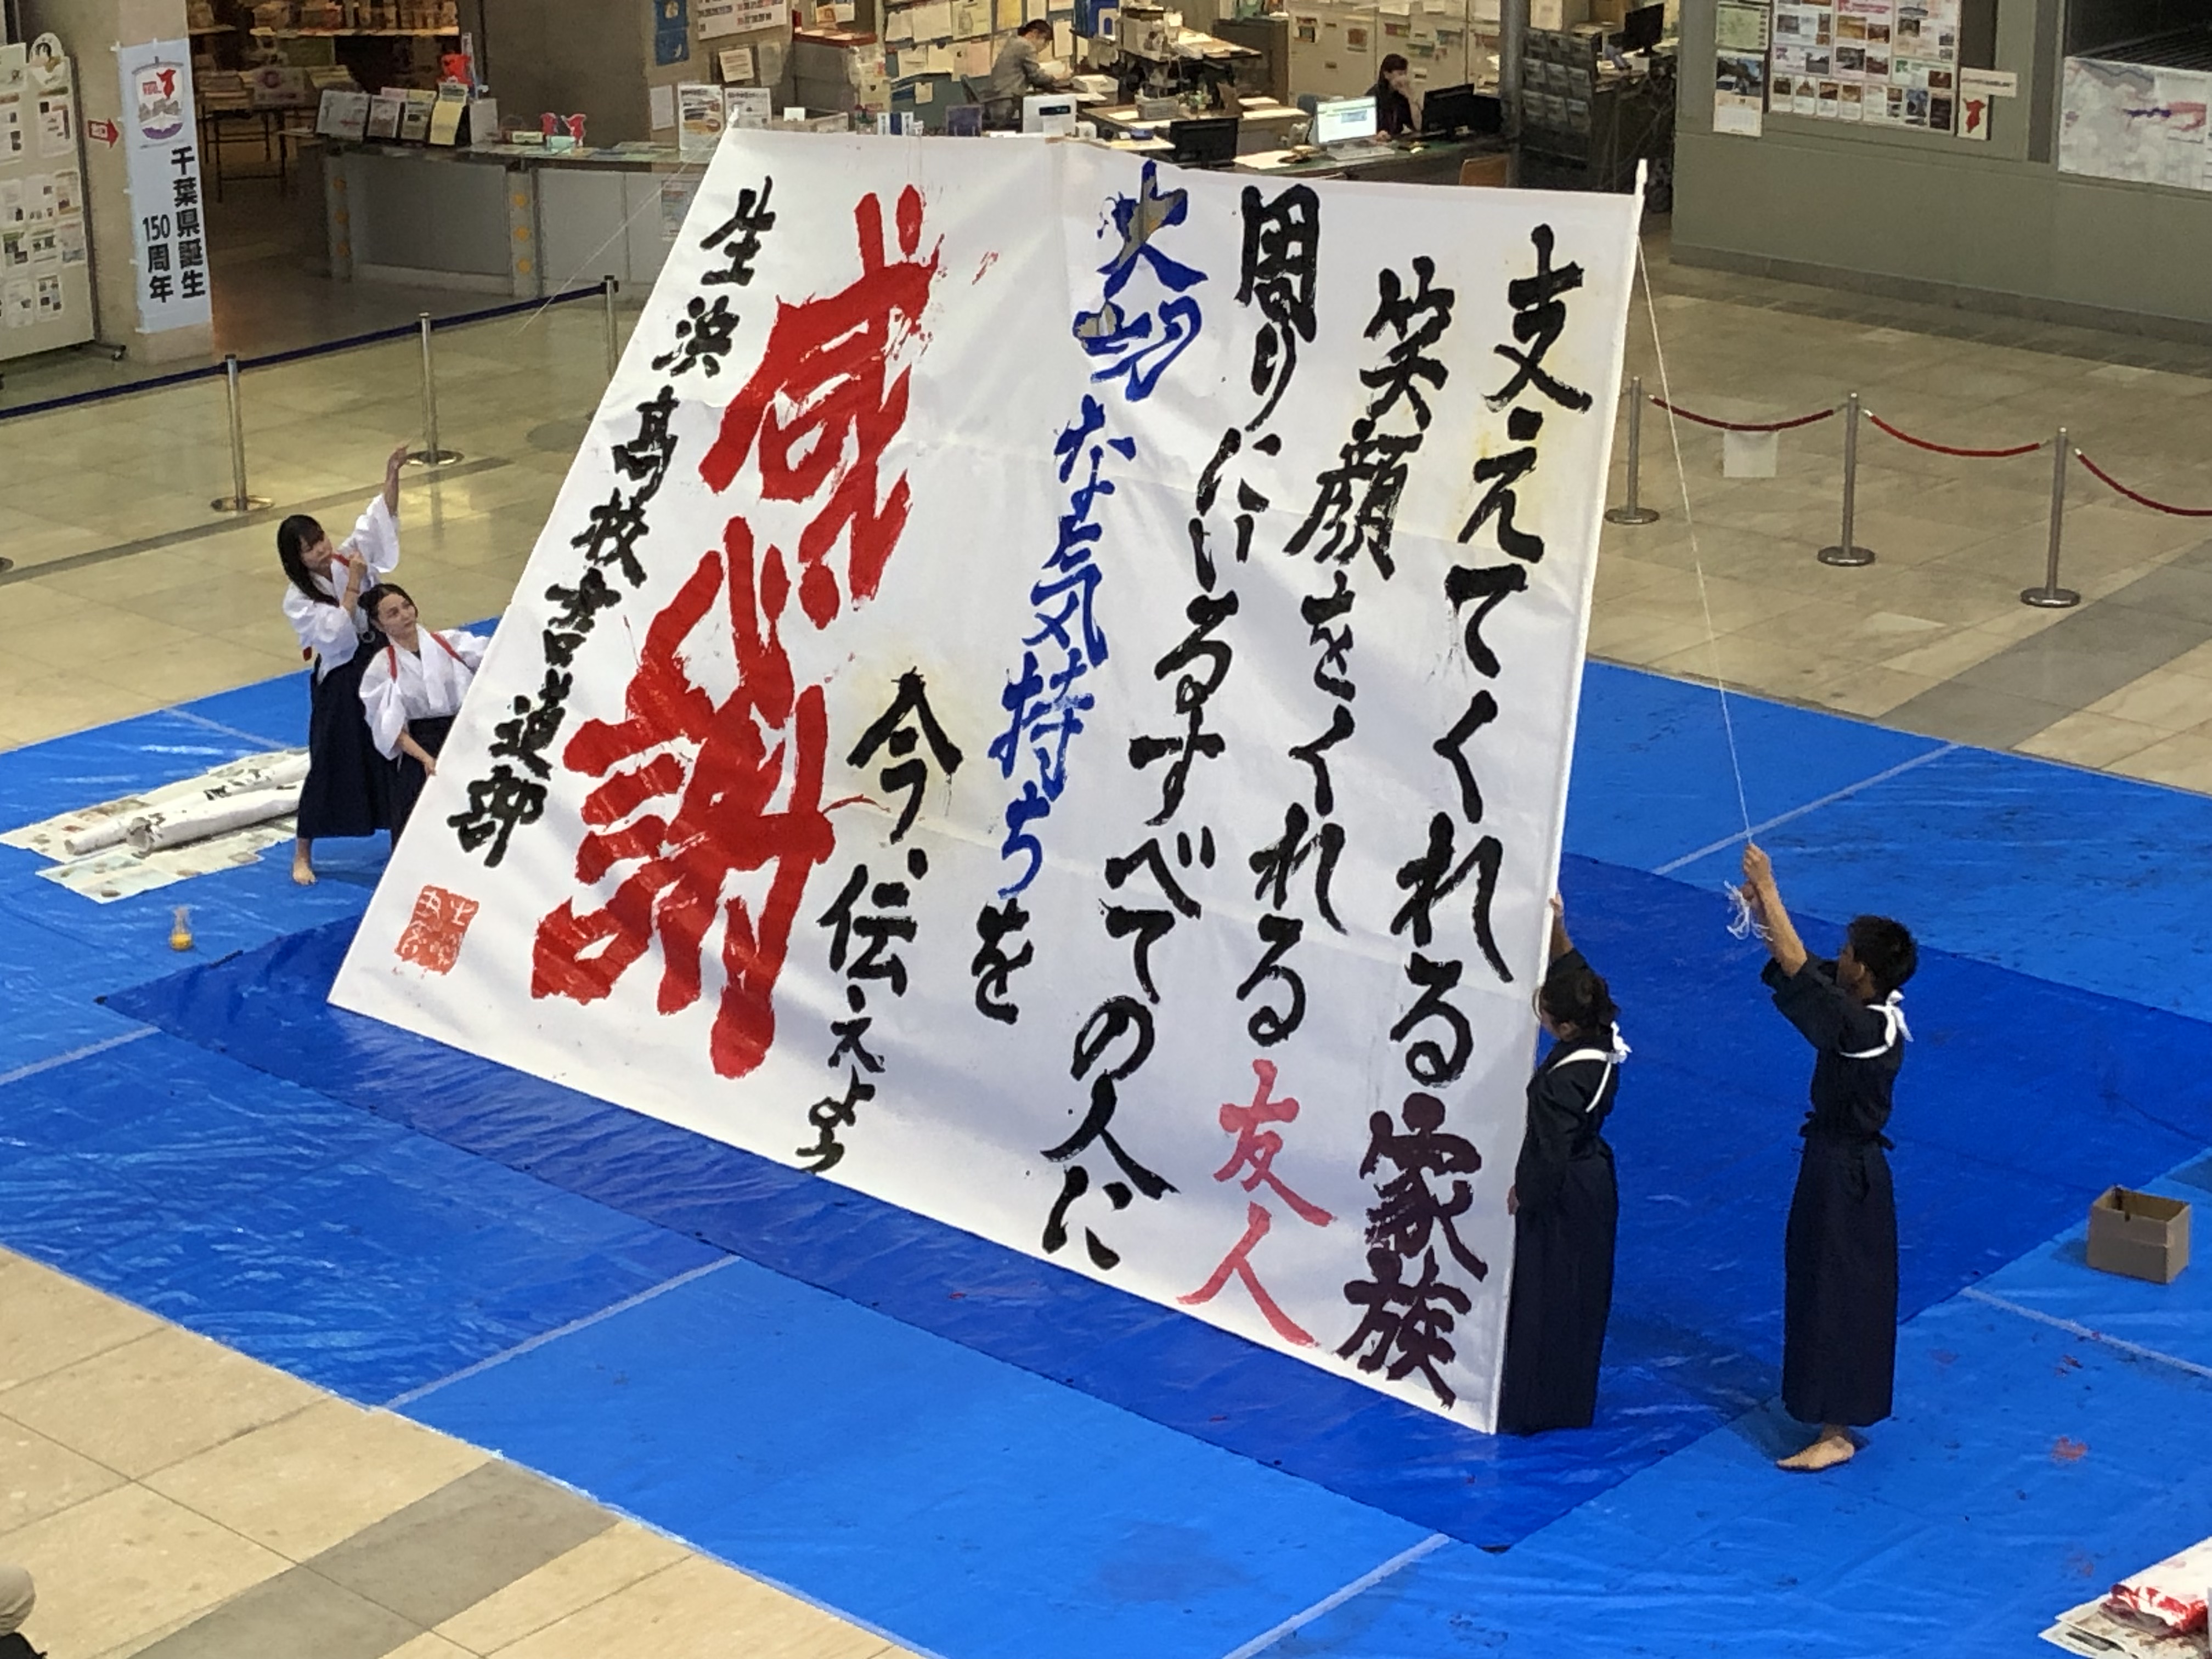 支えてくれる家族
笑顔をくれる友人
周りにいるすべての人に
大切な気持ちを
今、伝えよう
感謝
生浜高校書道部
千葉県誕生
150周年